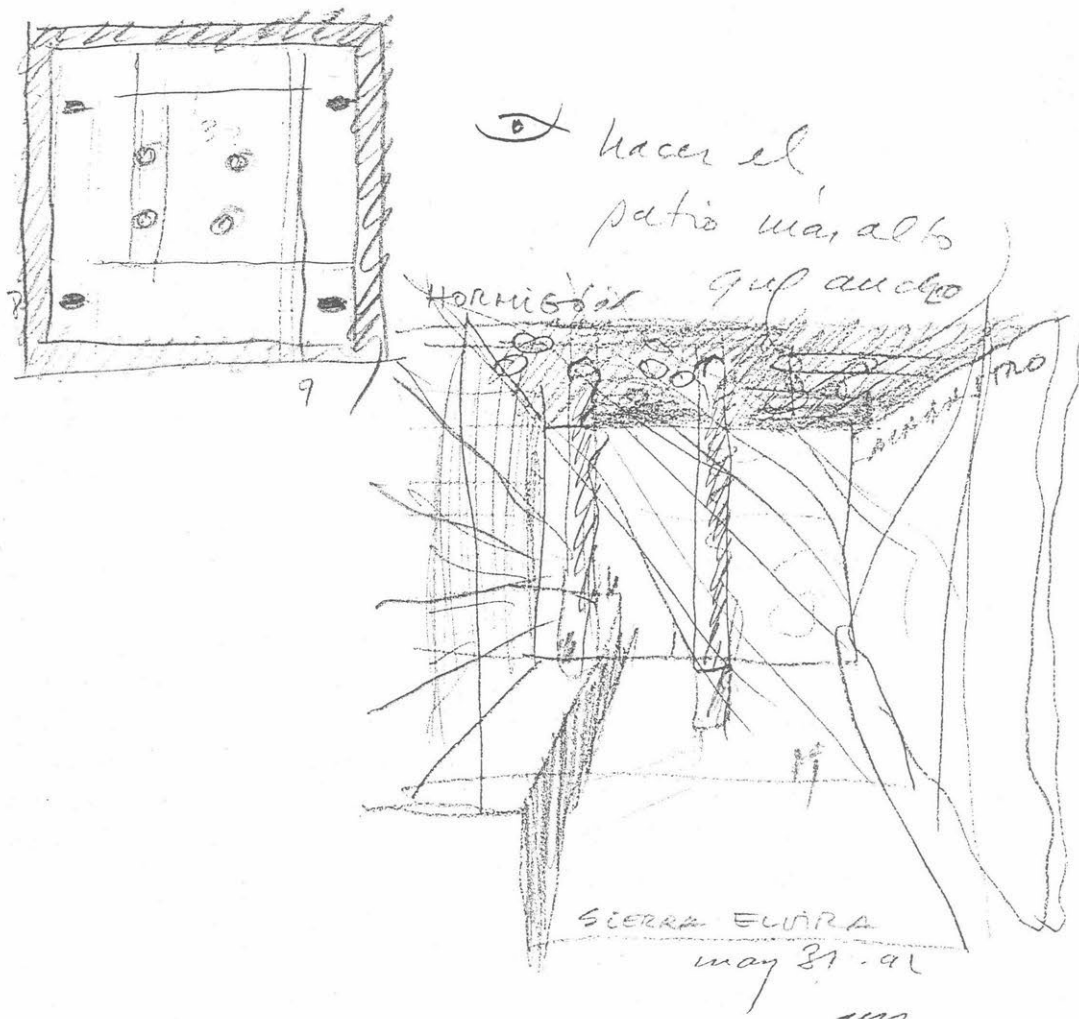 hacer el
patio más alto
que ancho
HORMIGÓN
9
SIERRA ELVIRA
may 31 - 92